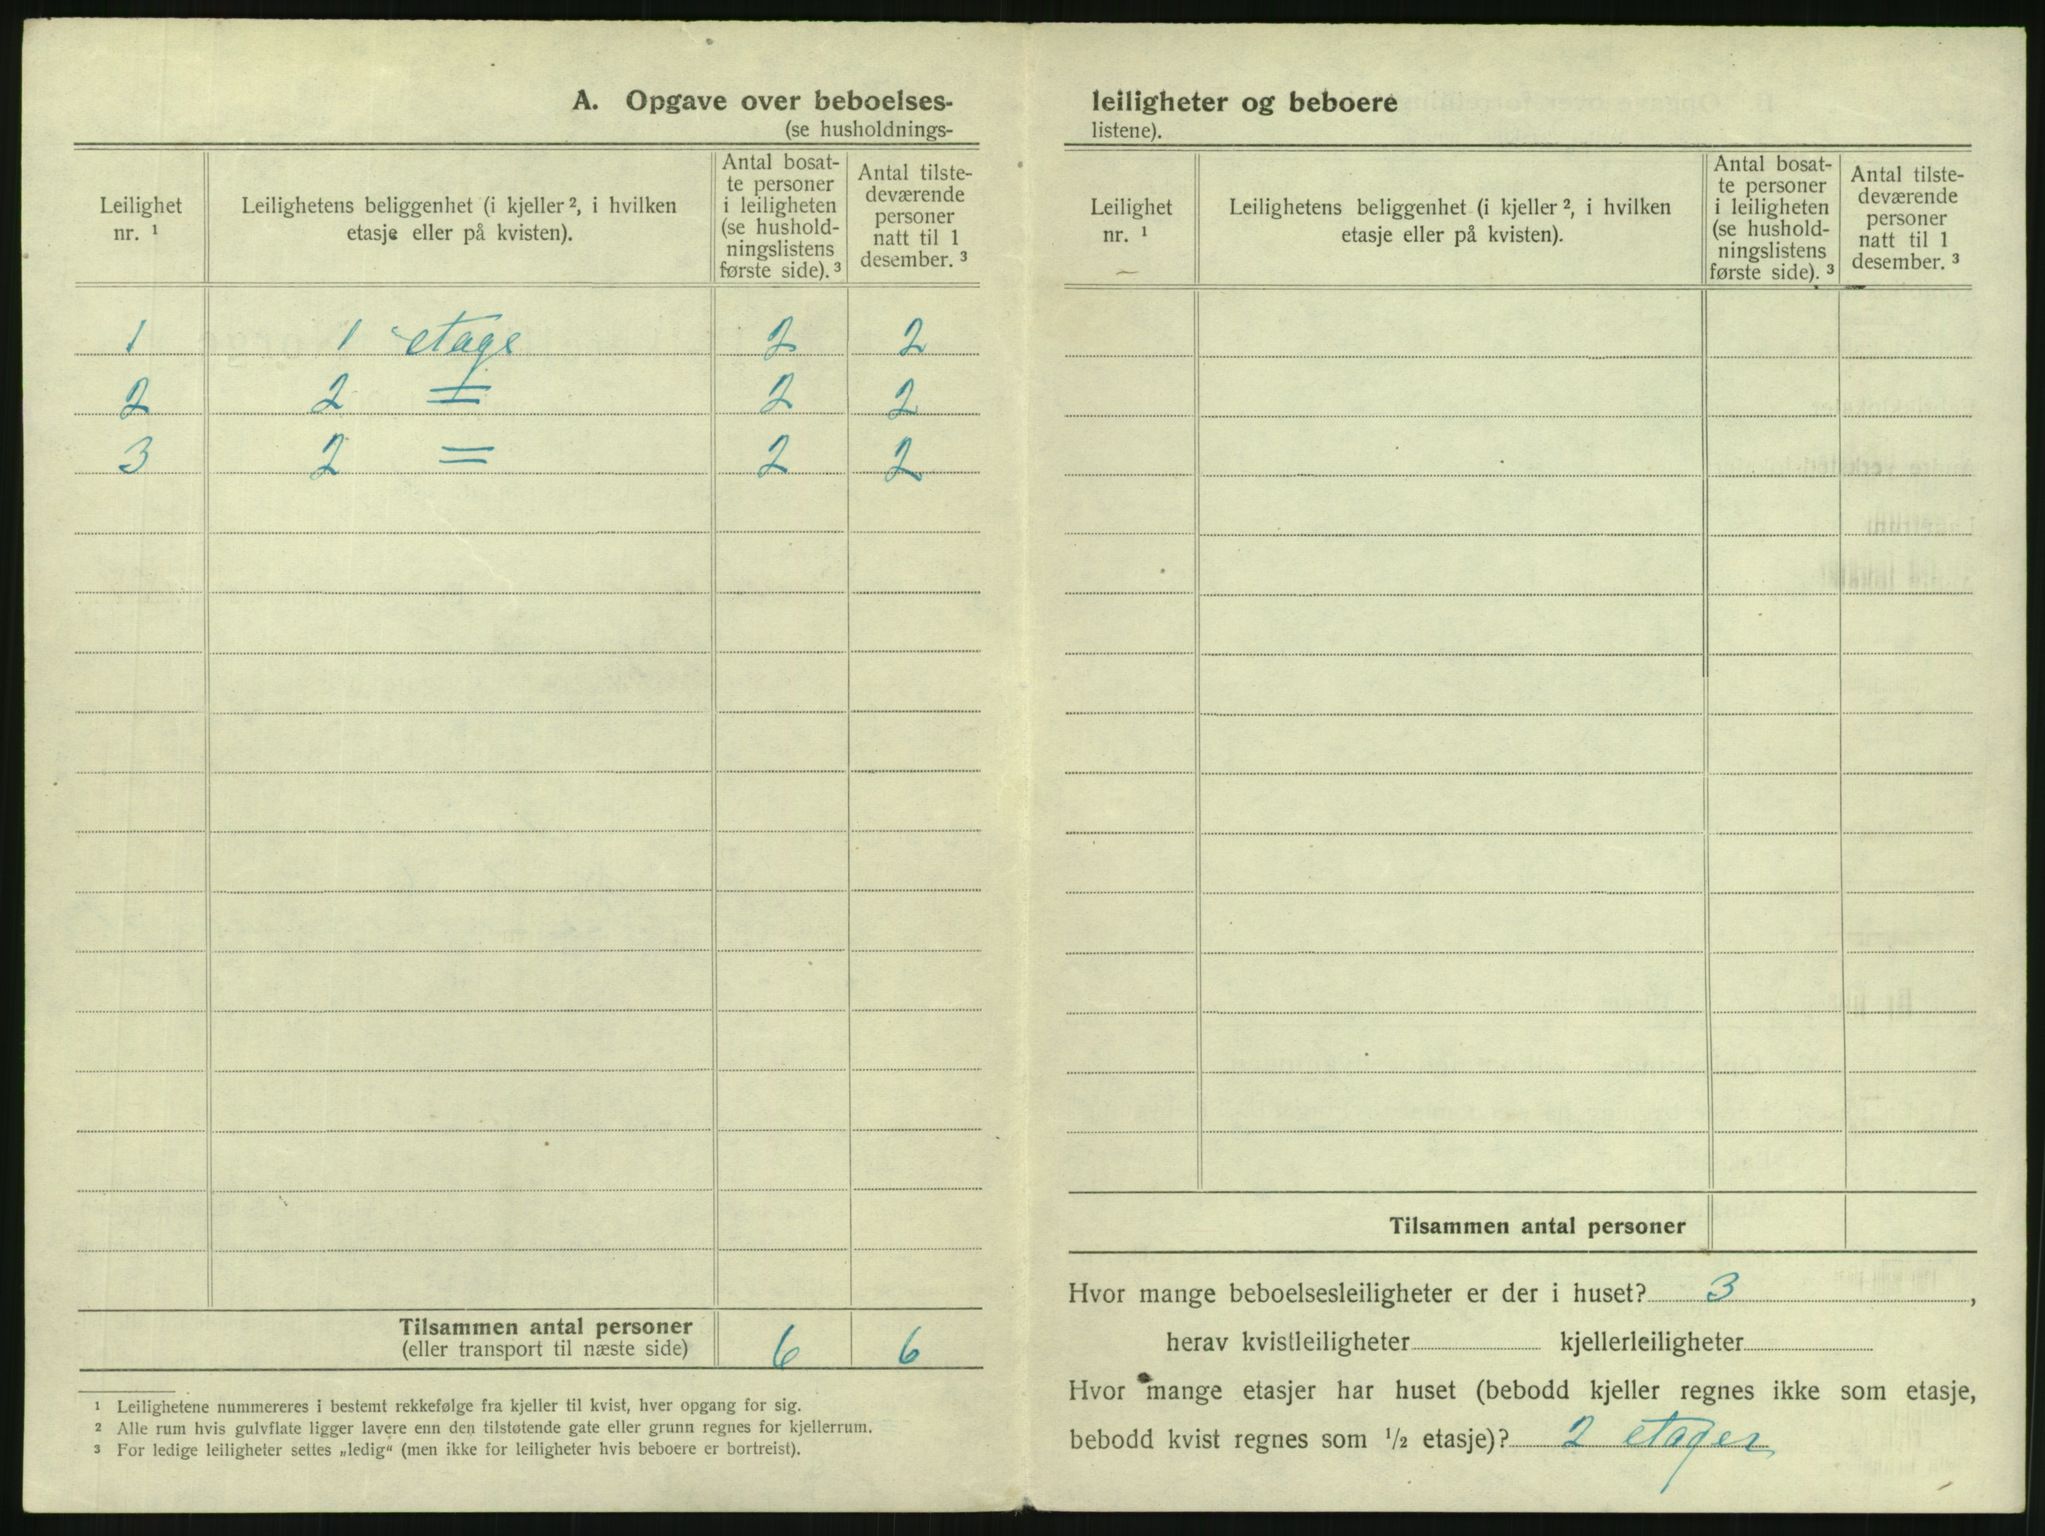 A. Opgave over beboelses-
(se husholdnings-
Leilighet nr. ¹
Leilighetens beliggenhet (i kjeller ², i hvilken etasje eller på kvisten).
Antal bosat-
te personer
i leiligheten
(se hushold-
ningslistens
første side). ³
Antal tilste-
deværende
personer
natt til 1
desember. ³
1 1 etage 2 2
2 2 = 2 2
3 2 = 2 2
Tilsammen antal personer 6 6
(eller transport til næste side)
¹ Leilighetene nummereres i bestemt rekkefølge fra kjeller til kvist, hver opgang for sig.
² Alle rum hvis gulvflate ligger lavere enn den tilstøtende gate eller grunn regnes for kjellerrum.
³ For ledige leiligheter settes „ledig“ (men ikke for leiligheter hvis beboere er bortreist).
leiligheter og beboere
listene).
Leilighet nr. ¹
Leilighetens beliggenhet (i kjeller ², i hvilken etasje eller på kvisten).
Antal bosat-
te personer
i leiligheten
(se hushold-
ningslistens
første side). ³
Antal tilste-
deværende
personer
natt til 1
desember. ³
Tilsammen antal personer
Hvor mange beboelsesleiligheter er der i huset? 3 ,
herav kvistleiligheter kjellerleiligheter
Hvor mange etasjer har huset (bebodd kjeller regnes ikke som etasje,
bebodd kvist regnes som ½ etasje)? 2 etager